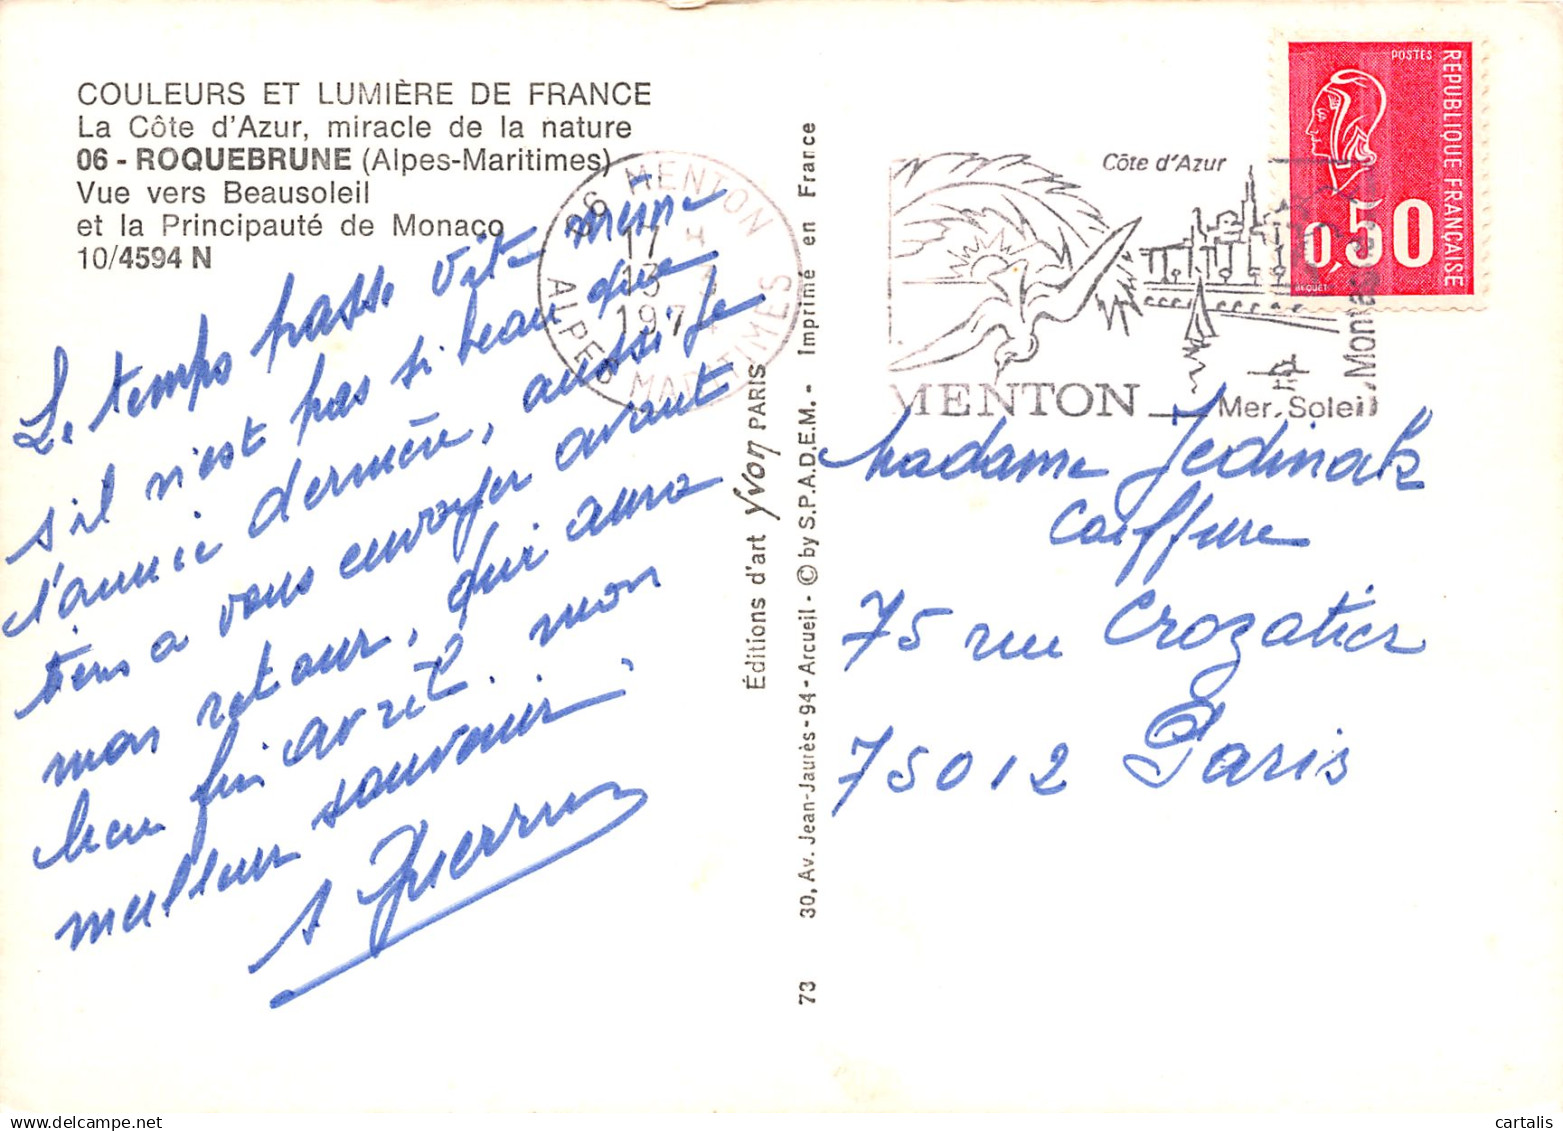 COULEURS ET LUMIÈRE DE FRANCE
La Côte d'Azur, miracle de la nature
06 - ROQUEBRUNE (Alpes-Maritimes)
Vue vers Beausoleil
et la Principauté de Monaco
10/4594 N
Le temps passe vite même
s'il n'est pas si beau que
l'année dernière, aussi je
tiens a vous envoyer avant
mon retour, qui aura
lieu fin avril. mon
meilleur souvenir
06 MENTON
17 H
13 3
1974
ALPES MARITIMES
Éditions d'art Yvon PARIS
30, Av. Jean-Jaurès - 94 - Arcueil - © by S.P.A.D.E.M. - Imprimé en France
73
Côte d'Azur
MENTON
Mer, Soleil
POSTES
REPUBLIQUE FRANÇAISE
0,50
BEQUET
Madame Jedinak
Coiffure
75 rue Crozatier
75012 Paris
cartalis